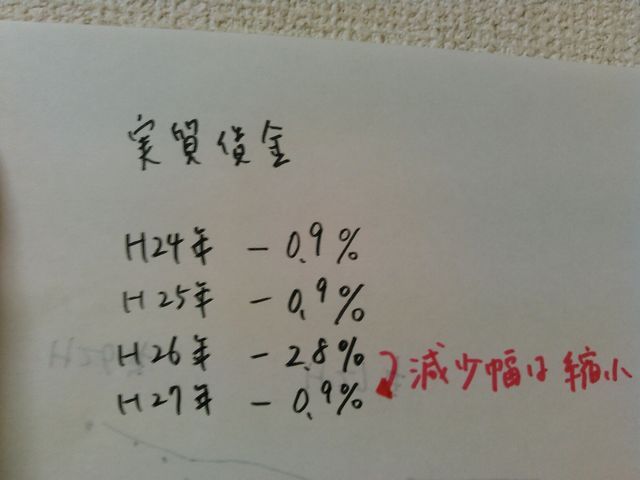 実質賃金
H24年 -0.9%
H25年 -0.9%
H26年 -2.8%
H27年 -0.9%
減少幅は縮小